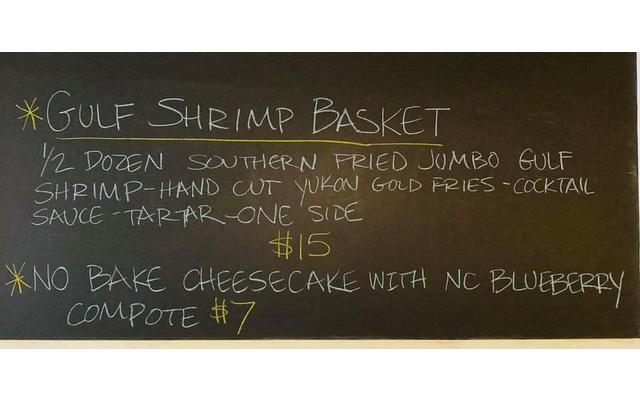 *GULF SHRIMP BASKET
1/2 DOZEN SOUTHERN FRIED JUMBO GULF
SHRIMP-HAND CUT YUKON GOLD FRIES-COCKTAIL
SAUCE-TARTAR-ONE SIDE
$15
*NO BAKE CHEESECAKE WITH NC BLUEBERRY
COMPOTE $7